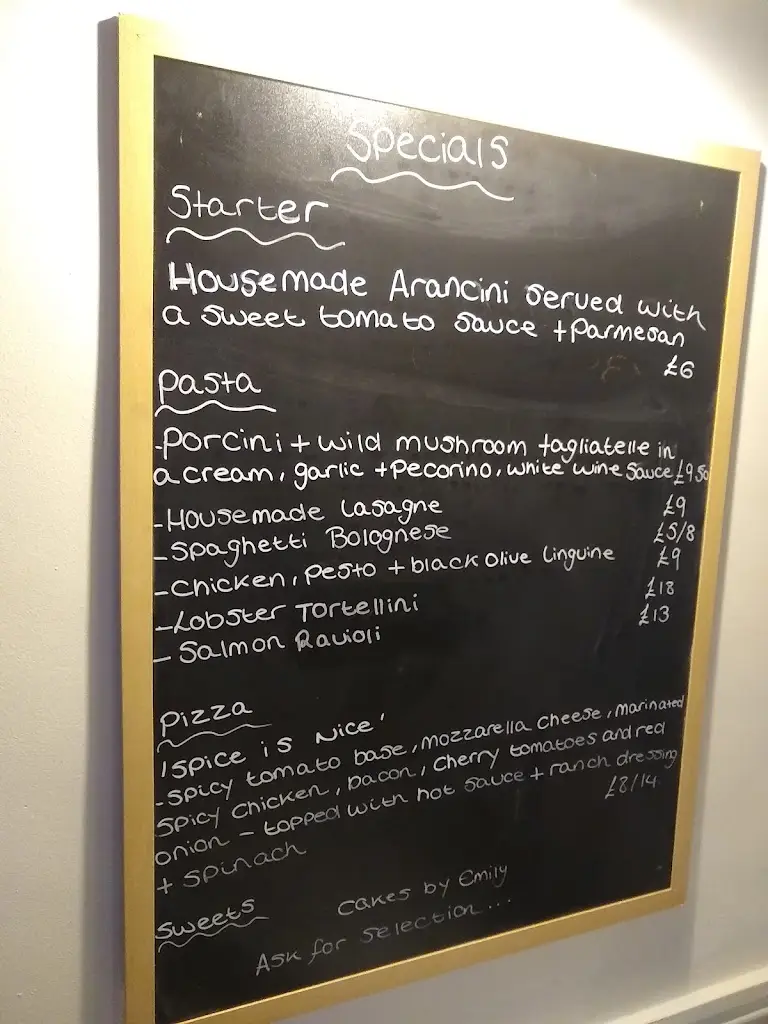 Specials
Starter
Housemade Arancini served with
a sweet tomato sauce + Parmesan
£6
Pasta
-Porcini + wild mushroom tagliatelle in
a cream, garlic + Pecorino, white wine sauce £9.50
-Housemade Lasagne £9
-Spaghetti Bolognese £5/8
-Chicken, Pesto + black olive linguine £9
-Lobster Tortellini £18
- Salmon Ravioli £13
Pizza
'Spice is Nice'
-Spicy tomato base, mozzarella cheese, marinated
spicy chicken, bacon, cherry tomatoes and red
onion - topped with hot sauce + ranch dressing
+ spinach £8/14
Sweets Cakes by Emily
Ask for selection...